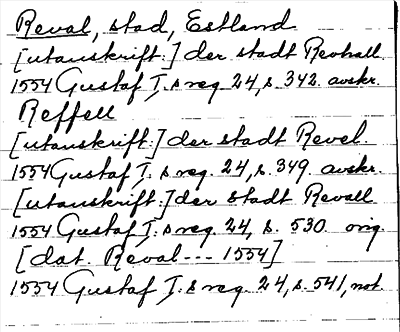 Reval, stad, Estland
[utanskrift:] der stadt Revhall
1554 Gustaf I:s reg. 24, s. 342. avskr.
Reffell
[utanskrift:] der stadt Revel.
1554 Gustaf I:s reg. 24, s. 349. avskr.
[utanskrift:] der stadt Revall
1554 Gustaf I:s reg. 24, s. 530. orig.
[dat. Reval --- 1554]
1554 Gustaf I:s reg. 24, s. 541, not.